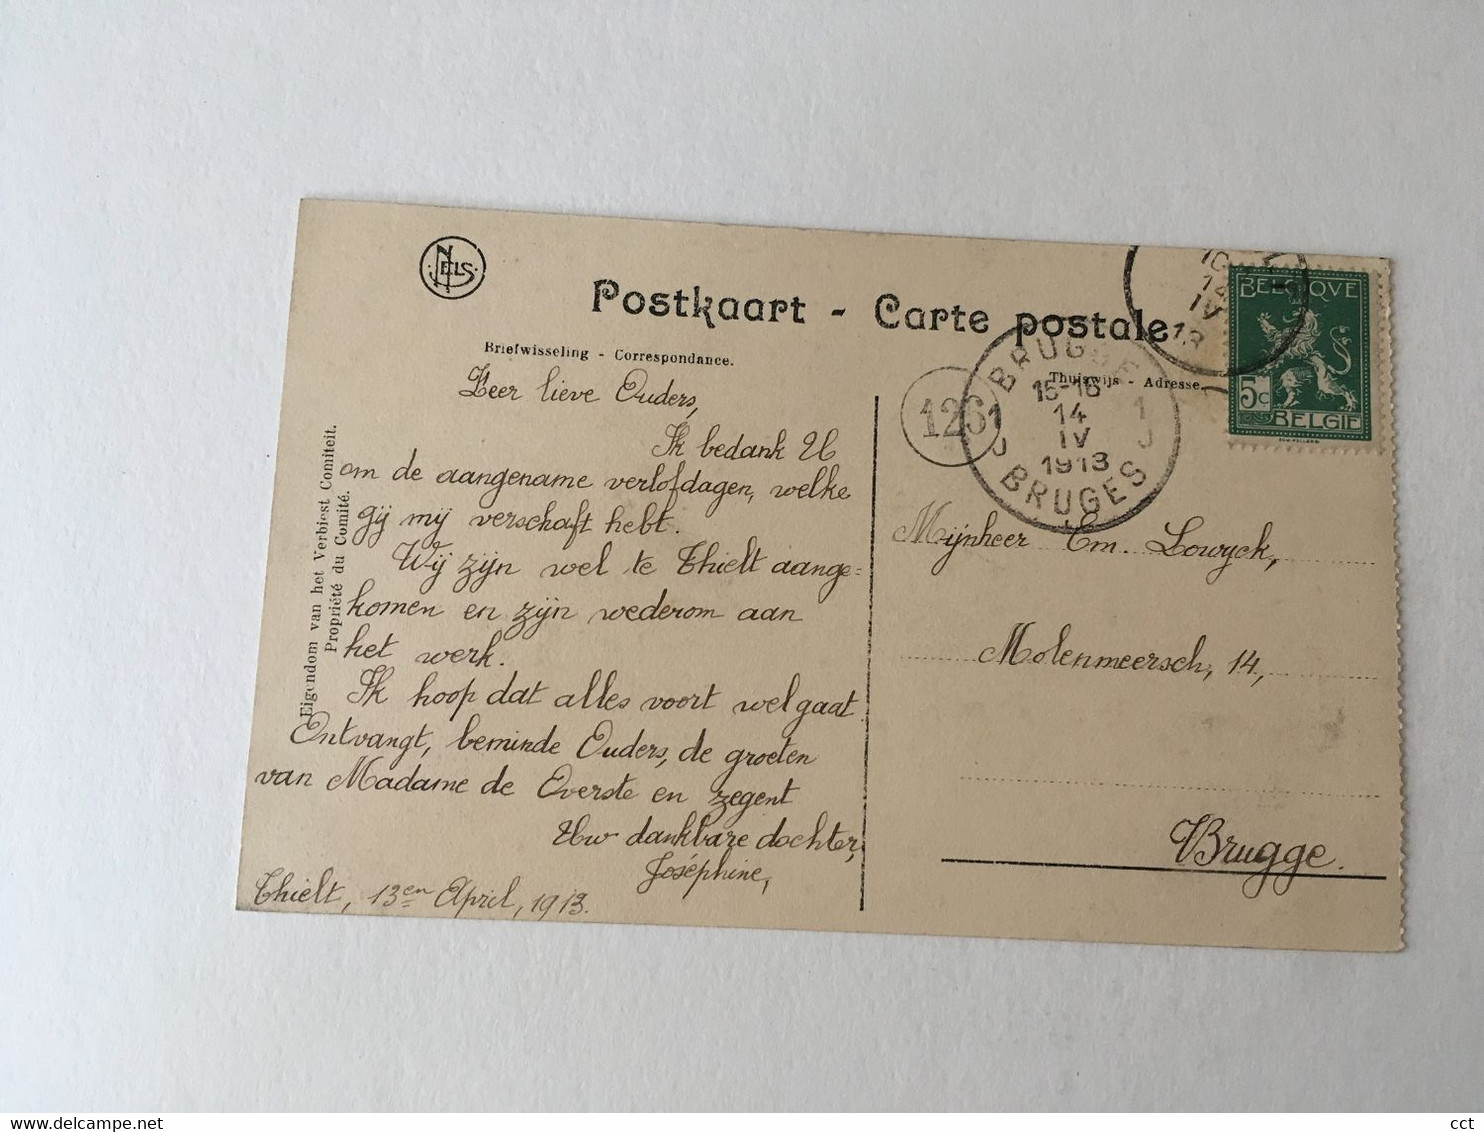 NELS
Postkaart - Carte postale
Briefwisseling - Correspondance.
Thuiswijs - Adresse.
Eigendom van het Verbiest Comiteit.
Propriété du Comité.
Zeer lieve Ouders,
Ik bedank U
om de aangename verlofdagen, welke
gij mij verschaft hebt.
Wij zijn wel te Thielt aange=
komen en zijn wederom aan
het werk.
Ik hoop dat alles voort wel gaat
Ontvangt, beminde Ouders, de groeten
van Madame de Overste en zegent
Uw dankbare dochter,
Joséphine,
Thielt, 13en April, 1913.
126
BRUGGE
1 15-16 1
J 14 J
IV
1913
BRUGES
10
14
IV
13
BELGIQVE
5c
BELGIE
Mijnheer Em. Lowyck,
Molenmeersch, 14,
Brugge.
www.delcampe.net
cct